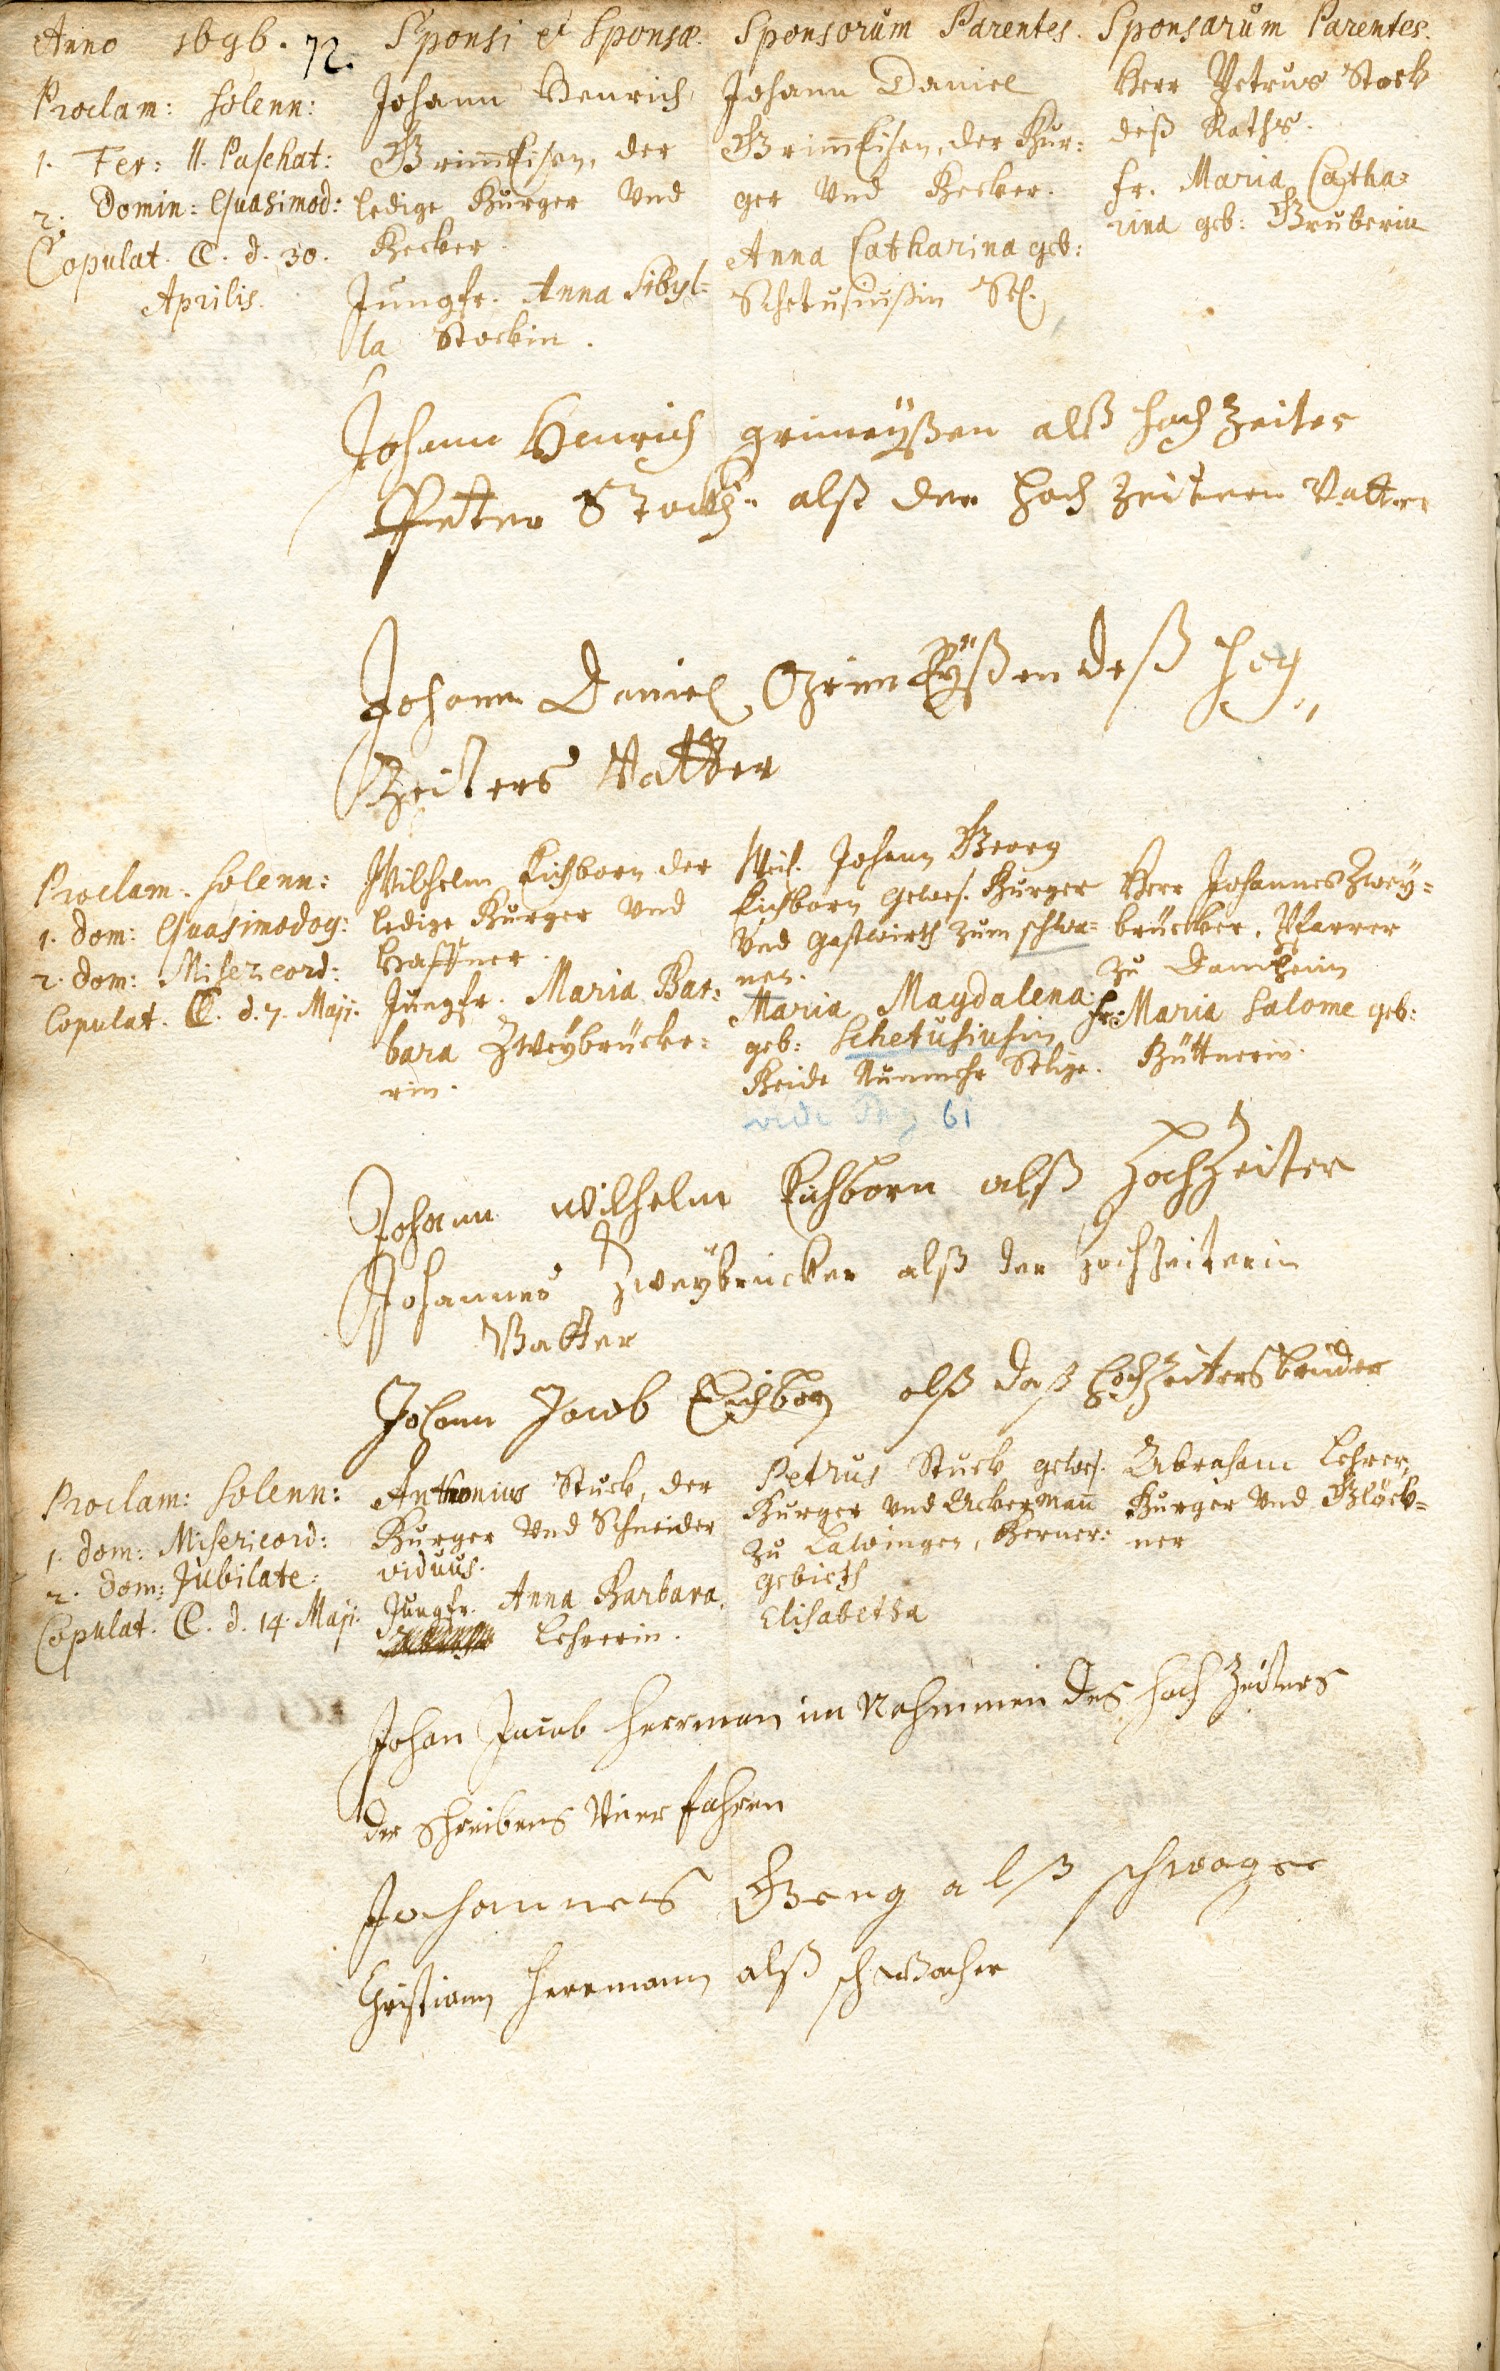 Anno 1696. 72. Sponsi et Sponsæ. Sponsorum Parentes. Sponsarum Parentes.
Proclam: solenn:
1. Fer: II. Paschat:
2. Domin: Quasimod:
Copulat. d. 30.
Aprilis.
Johann Henrich
Grimmeisen, der
ledige Burger Vnd
Becker.
Jungfr. Anna Sibyl=
la Stockin.
Johann Daniel
Grimmeisen, der Bur=
ger Vnd Becker.
Anna Catharina geb:
Schetusiußin Sel.
Herr Petrus Stock
deß Raths.
Fr. Maria Catha=
rina geb: Gruberin
Johann Henrich grimeyßen alß hoch Zeiter
Peter Stock alß der hoch Zeiteren Vatter
Johann Daniel Grimeyßen deß hog
Zeiters Vatter
Proclam. solenn:
1. Dom: Quasimodog:
2. dom: Misericord:
Copulat. d. 7. Maji.
Wilhelm Eichborn der
ledige Burger Vnd
Haffner.
Jungfr. Maria Bar=
bara Zweybrücke=
rin.
Weil. Johann Georg
Eichborn gewes. Burger
Vnd Gastwirth zum schwa=
nen.
Maria Magdalena
geb: Schetusiusin
Beide Nunmehr Selige.
vide Pag 61
Herr Johannes Zwey=
brücker, Pfarrer
zu Damheim
Fr. Maria Salome geb:
Büttnerin.
Johann Wilhelm Eichborn alß HochZeiter
Johannes Zweybrücker alß der HochZeiterin
Vatter
Johann Jacob Eichborn alß daß HochZeiters bruder
Proclam: solenn:
1. dom: Misericord:
2. dom: Jubilate.
Copulat. d. 14. Maji.
Anthonius Stuck, der
Burger Vnd Schneider
viduus.
Jungfr. Anna Barbara
Lehrerin.
Petrus Stuck gewes.
Burger Vnd Ackerman
zu Lawingen, Berner=
gebieth
Elisabetha
Abraham Lehrer,
Burger Vnd Glöck=
ner
Johan Jacob Herrman im Nahmmen des hoch Zeiters
der Schreibens Vner fahren
Johannes Geng alß schwager
Christiann Herrmann alß